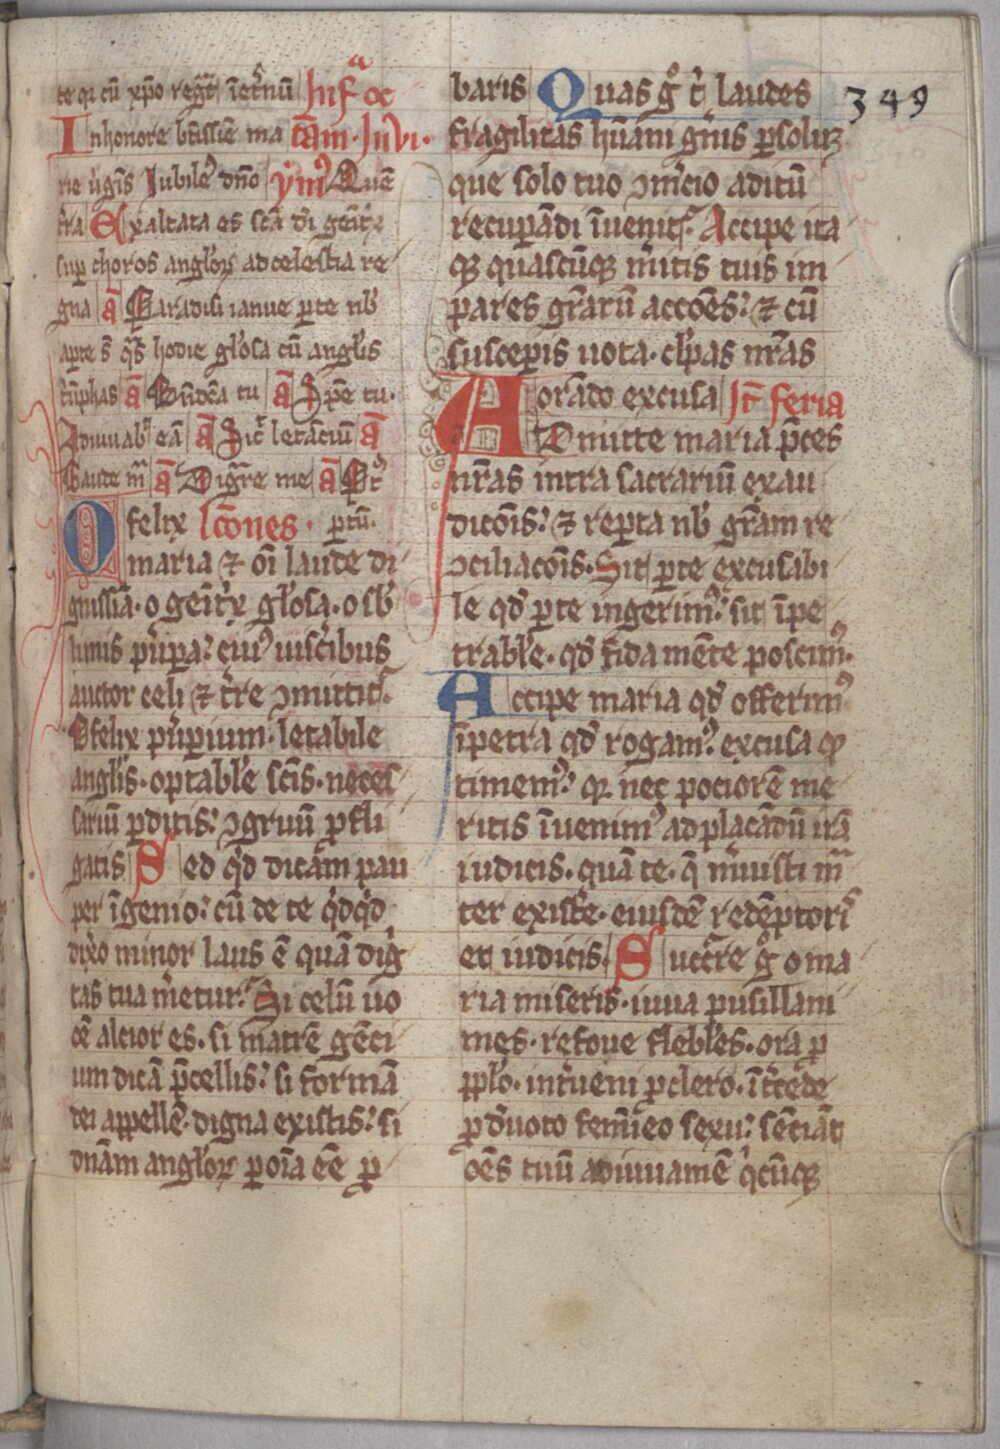 te qi cū xpo regt ī et̄nū Infᵃ oc
Inhonore btīssīe ma tāam. Invi.
rie ūgis Iubile dño ymꝰ Quē
t̄ra Exaltata es scā di geīt̄x
sup choros angloꝝ ad celestia re
gna ā Paradisi ianue ꝑ te nb
aꝑte s̄ q̄s hodie glosa cū anglis
t̄ūphas ā Bn̄dc̄a tu ā Spē tu.
Adiuuabᵗ eā ā Sic̄ letāciū ā
Gaude m̄ ā Digr̄e me ā Pꝰt
O felix Lc̄ones. ꝑtū.
maria ⁊ oī laude di
gnissīa. o geīt̄x glosa. o sb
limis pūꝑa. cuiꝰ uisc̄ibus
auctor celi ⁊ t̄re ꝯmittit᷑.
O felix pūꝑium. letabile
anglis. optable scīs. neces
sariū ꝑditis. ꝯgruū ꝓfli
gatis Sed qd dicam pau
per īgenio. cū de te qdqd
dixo minor laus ē quā dig
tas tua meretur. Si celū uo
cē altior es. si matrē gēci
um dicā p̄cellis. si formā
dei appellē. digna existis. si
dn̄am angloꝝ ꝑ oīa eē ꝓ
baris Quas g̊ t̄ laudes 349
fragilitas hūani gn̄is ꝑsoluꝫ
que solo tuo ꝯm̄cio aditū
recuꝑādi īuenit᷑. Accipe ita
qꝫ quascūqꝫ m̄itis tuis im
pares gr̄arū accōes. ⁊ cū
susceꝑis uota. clpas nr̄as
orādo excusa It̄ feria
Admitte maria p̄ces
nr̄as intra sacrariū exau
dicōis. ⁊ reꝑta nb gr̄am re
ꝯciliacōis. Sit ꝑ te excusabi
le qd ꝑ te ingerimꝰ. sit īpe
trable. qd fida mēte poscimꝰ.
Accipe maria qd offerimꝰ
īpetra qd rogamꝰ. excusa qd
timemꝰ. qꝛ nec pociorē me
ritis īuenimꝰ ad placādū irā
iudicis. quā te. q̄ m̄uisti m̄
ter existe. eiusdē redēptoriˢ
et iudicis. Succr̄e g̊ o ma
ria miseris. iuua pusillani
mes. refoue flebles. ora ꝓ
pplo. int̄ueni ꝓ clero. īt̄cede
ꝓ deuoto femīeo sexu. sēciāt
oēs tuū adiuuamē qcūqꝫ